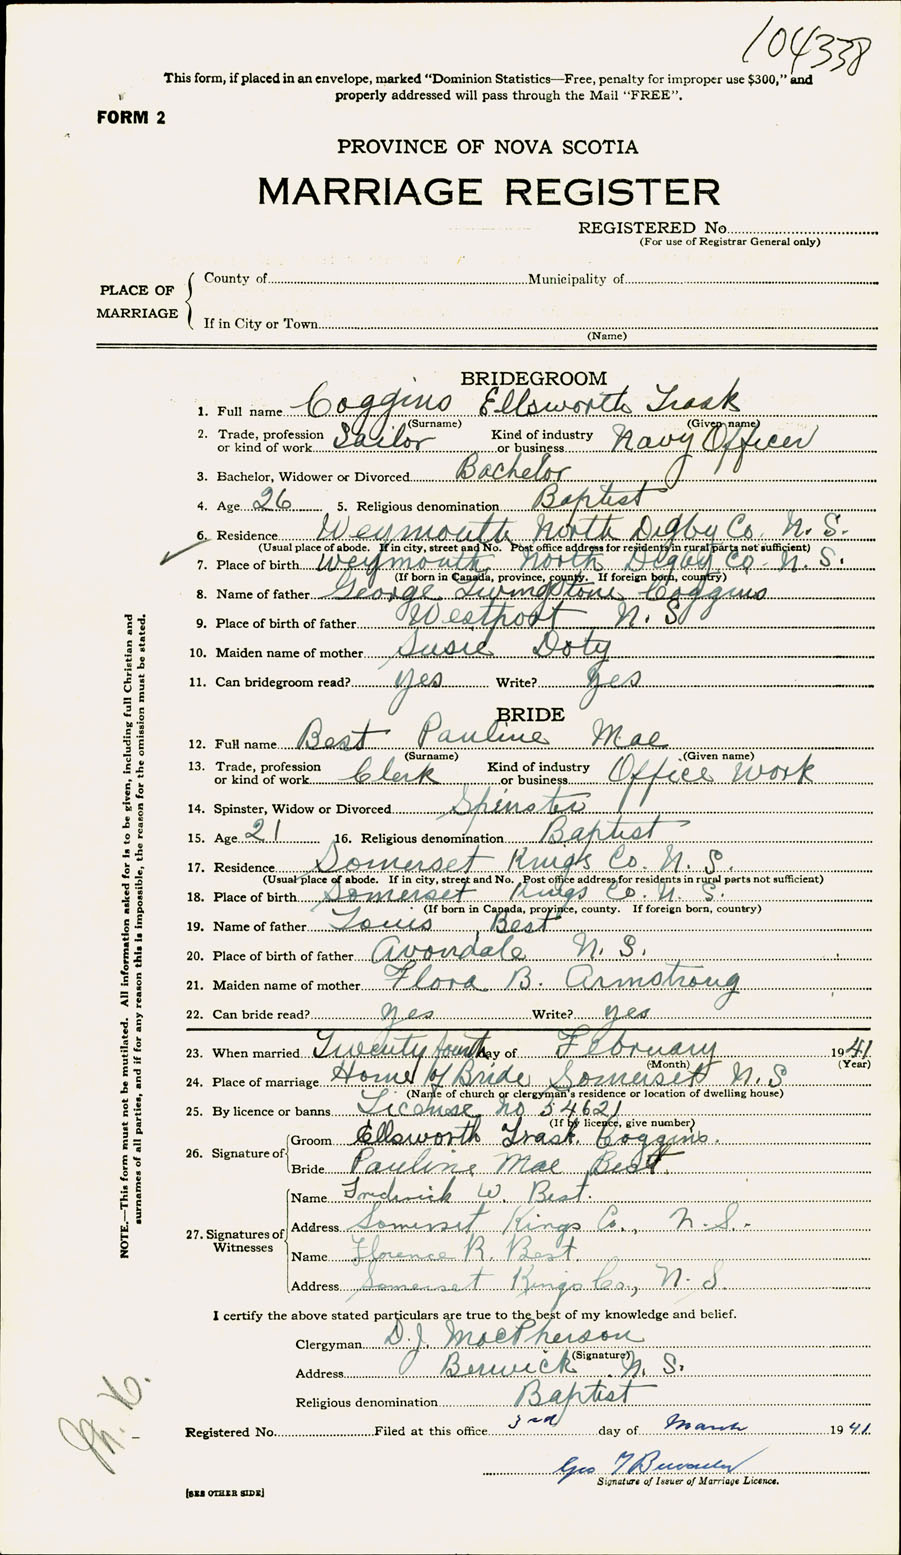 104338
This form, if placed in an envelope, marked "Dominion Statistics—Free, penalty for improper use $300," and
properly addressed will pass through the Mail "FREE".
FORM 2
PROVINCE OF NOVA SCOTIA
MARRIAGE REGISTER
REGISTERED No.
(For use of Registrar General only)
PLACE OF MARRIAGE
County of Municipality of
If in City or Town
(Name)
BRIDEGROOM
1. Full name Coggins Ellsworth Trask
(Surname) (Given name)
2. Trade, profession or kind of work Sailor Kind of industry or business Navy Officer
3. Bachelor, Widower or Divorced Bachelor
4. Age 26 5. Religious denomination Baptist
6. Residence Weymouth North Digby Co. N. S.
(Usual place of abode. If in city, street and No. Post office address for residents in rural parts not sufficient)
7. Place of birth Weymouth North Digby Co. N. S.
(If born in Canada, province, county. If foreign born, country)
8. Name of father George Livingstone Coggins
9. Place of birth of father Westport N. S
10. Maiden name of mother Susie Doty
11. Can bridegroom read? yes Write? yes
BRIDE
12. Full name Best Pauline Mae
(Surname) (Given name)
13. Trade, profession or kind of work Clerk Kind of industry or business Office Work
14. Spinster, Widow or Divorced Spinster
15. Age 21 16. Religious denomination Baptist
17. Residence Somerset Kings Co. N. S.
(Usual place of abode. If in city, street and No. Post office address for residents in rural parts not sufficient)
18. Place of birth Somerset Kings Co. N. S.
(If born in Canada, province, county. If foreign born, country)
19. Name of father Louis Best
20. Place of birth of father Avondale N. S.
21. Maiden name of mother Flora B. Armstrong
22. Can bride read? yes Write? yes
23. When married Twenty fourth day of February 1941
(Month) (Year)
24. Place of marriage Home of Bride Somerset N. S
(Name of church or clergyman's residence or location of dwelling house)
25. By licence or banns License no 54621
(If by licence, give number)
26. Signature of
Groom Ellsworth Trask Coggins.
Bride Pauline Mae Best.
27. Signatures of Witnesses
Name Frederick W. Best.
Address Somerset Kings Co., N. S.
Name Florence R. Best
Address Somerset Kings Co., N. S.
I certify the above stated particulars are true to the best of my knowledge and belief.
Clergyman D. J. MacPherson
(Signature)
Address Berwick N. S.
Religious denomination Baptist
Registered No. Filed at this office 3rd day of March 1941.
Geo
Signature of Issuer of Marriage Licence.
[SEE OTHER SIDE]
NOTE.—This form must not be mutilated. All information asked for is to be given, including full Christian and
surnames of all parties, and if for any reason this is impossible, the reason for the omission must be stated.